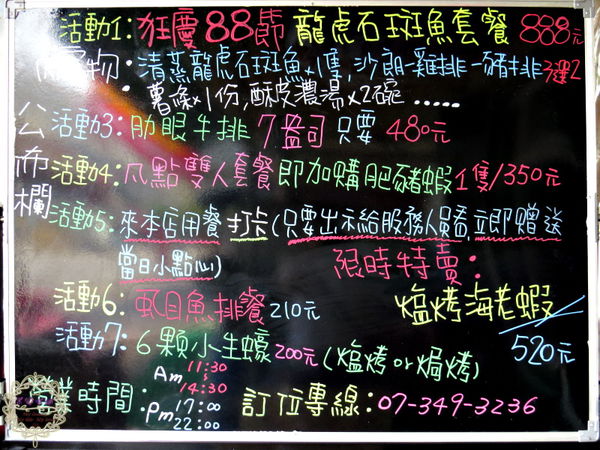 活動1: 狂慶88節 龍虎石斑魚套餐 888元
物: 清蒸龍虎石斑魚x1隻,沙朗-雞排-豬排3選2
薯條x1份,酥皮濃湯x2碗......
公布欄
活動3: 肋眼牛排 7盎司 只要 480元
活動4: 凡點雙人套餐即加購肥豬蝦1隻/350元
活動5: 來本店用餐 打卡(只要出示給服務人員看,立即贈送
當日小點心)
限時特賣:
活動6: 虱目魚排餐 210元
爐烤海老蝦
520元
活動7: 6顆小生蠔200元(爐烤or焗烤)
營業時間: Am 11:30 ~ 14:30
pm 17:00 22:00
訂位專線: 07-349-3236